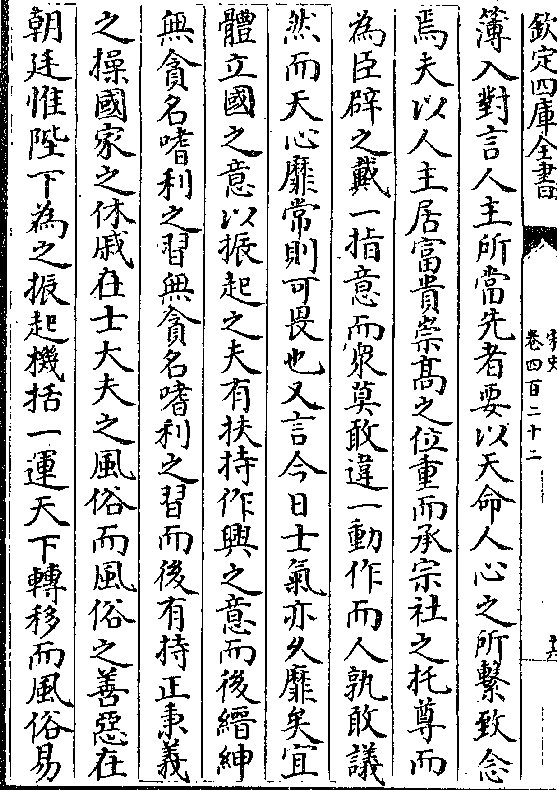 欽定四庫全書
宋史
卷四百二十二
簿入對言人主所當先者要以天命人心之所繫致念
焉夫以人主居富貴崇髙之位重而承宗社之托尊而
為臣辟之戴一指意而衆莫敢違一動作而人孰敢議
然而天心靡常則可畏也又言今日士氣亦久靡矣宜
體立國之意以振起之夫有扶持作興之意而後縉紳
無貪名嗜利之習無貪名嗜利之習而後有持正秉義
之操國家之休戚在士大夫之風俗而風俗之善惡在
朝廷惟陛下為之振起機括一運天下轉移而風俗易